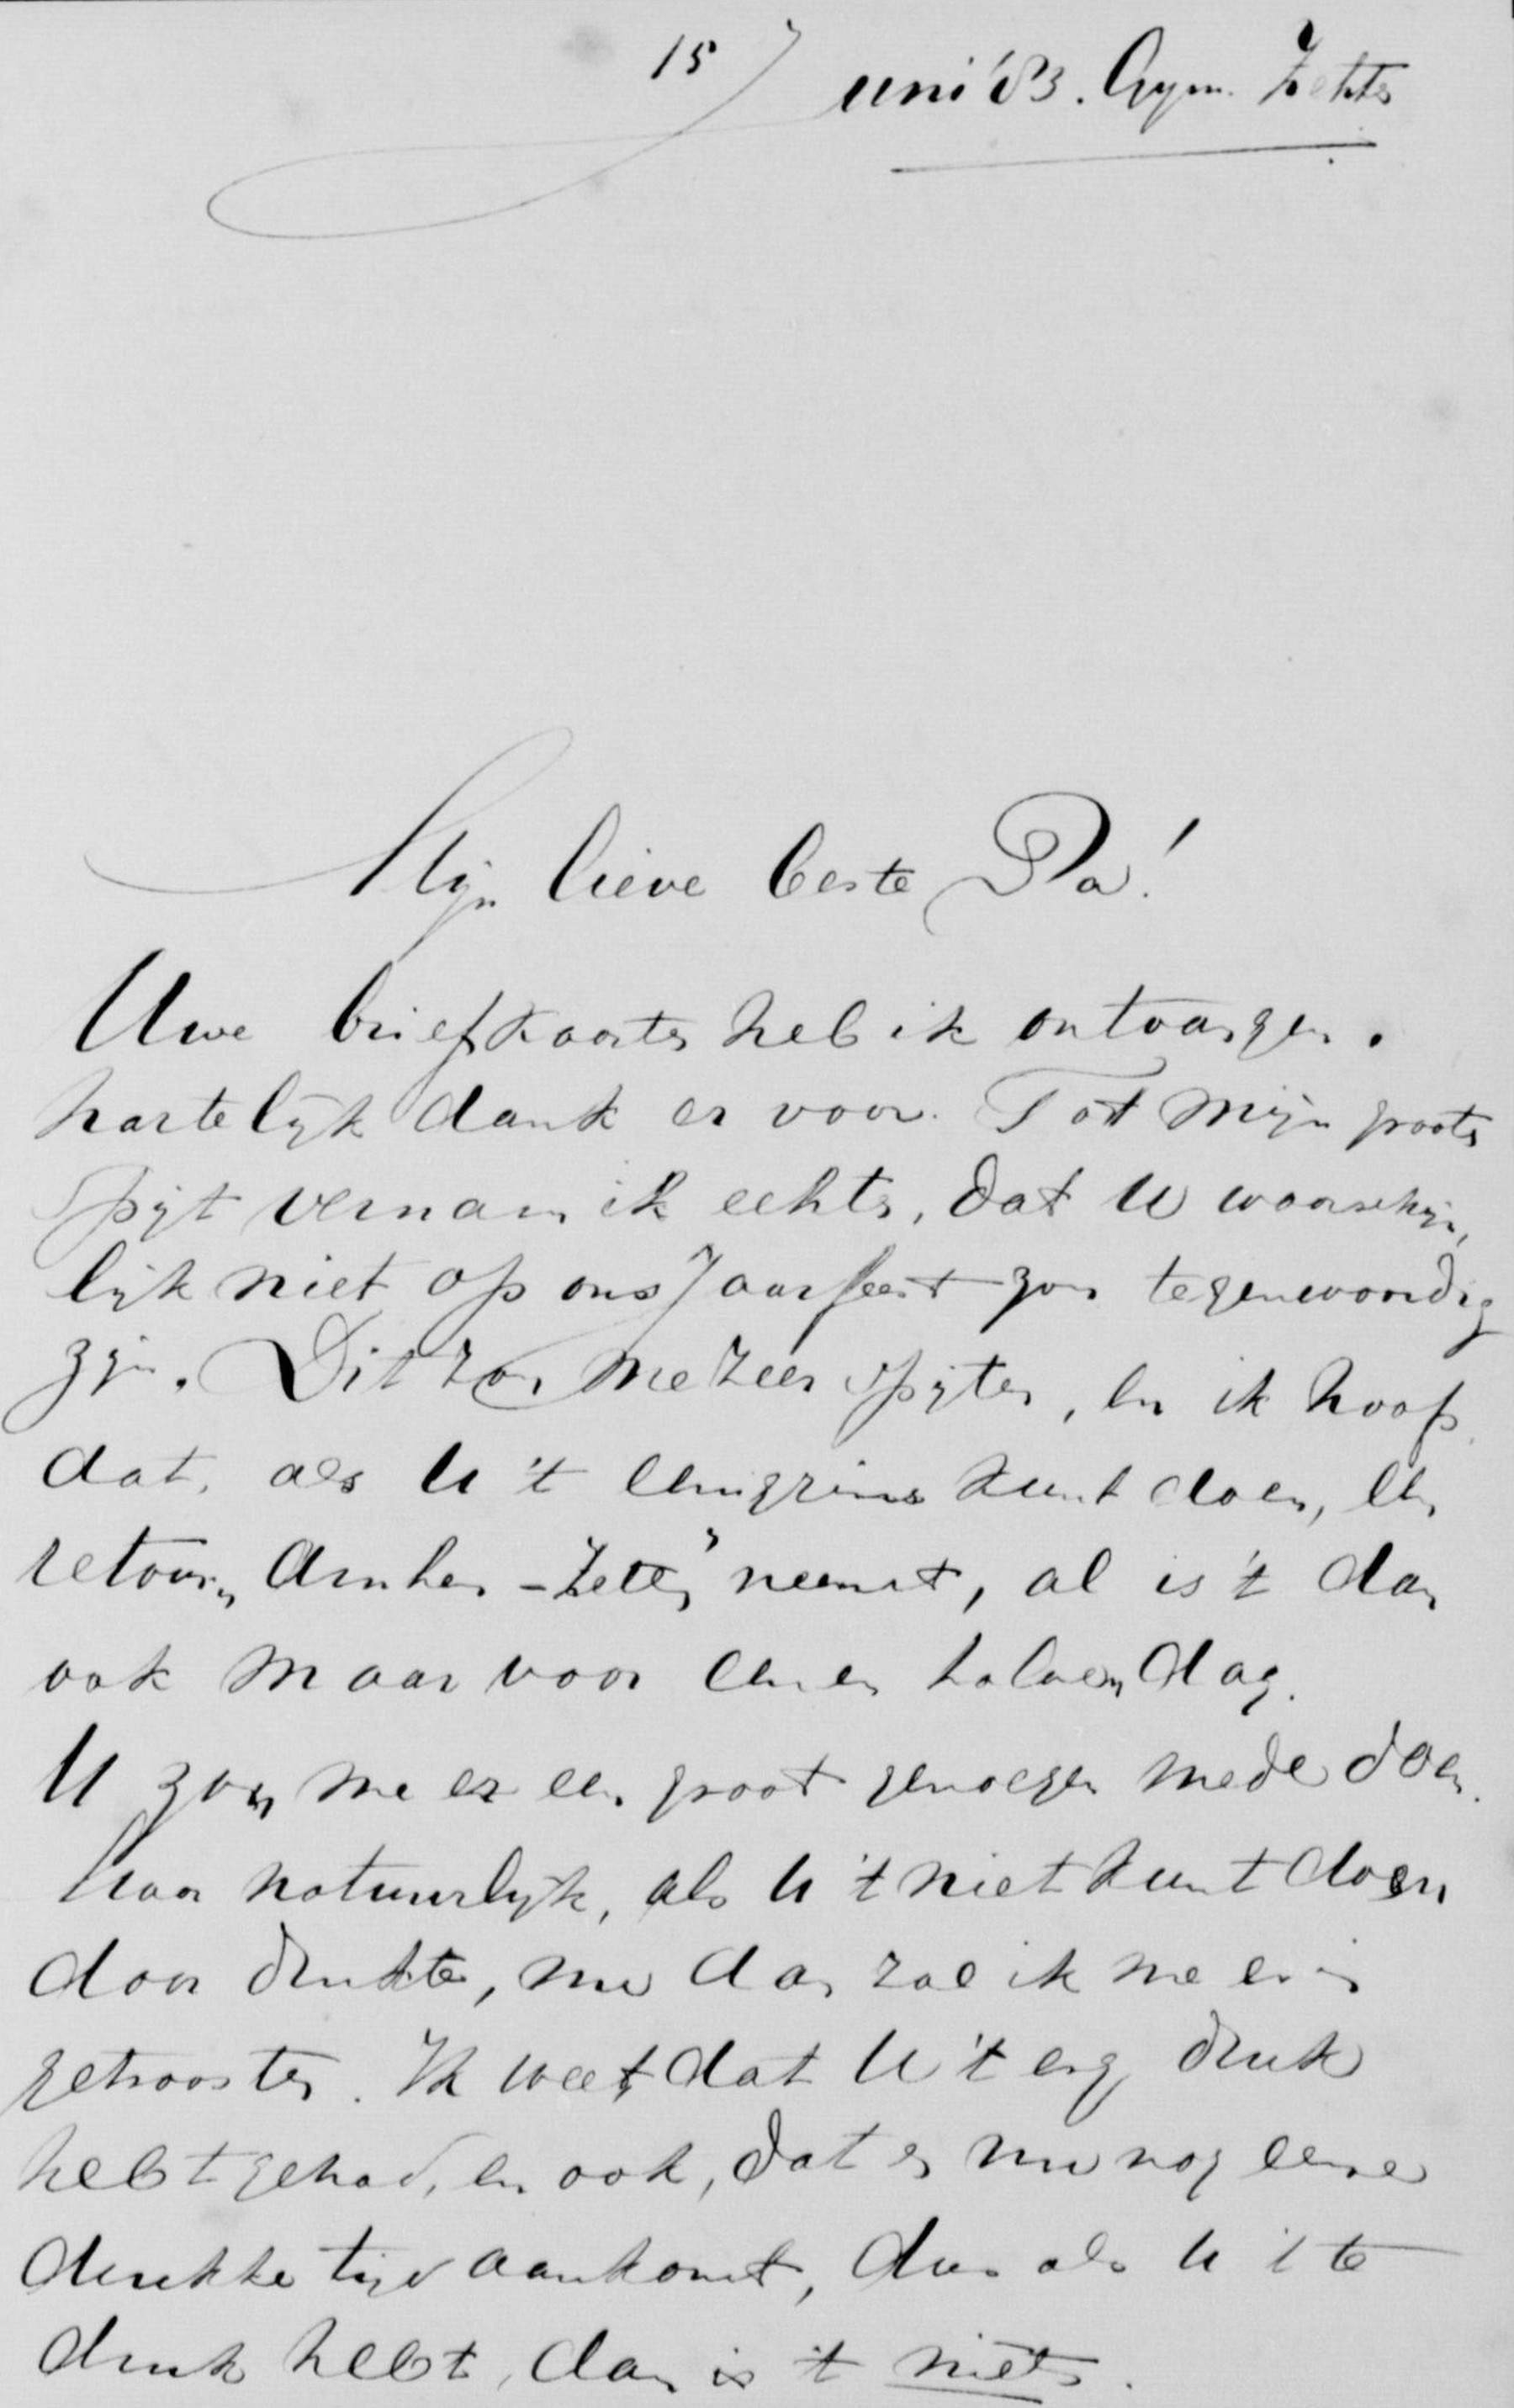 15 Juni '83. Gym. Zetten
Mijn lieve beste Pa!
Uwe briefkaarten heb ik ontvangen.
hartelijk dank er voor. Tot mijn groote
spijt vernam ik echter, dat U waarschijn,
lijk niet op ons Jaarfeest zou tegenwoordig
zijn. Dit zou me zeer spijten, en ik hoop
dat, als U 't eenigzins kunt doen, een
retour „Arnhem - Zetten" neemt, al is 't dan
ook maar voor eenen halven dag.
U zou me er een groot genoegen mede doen.
Maar natuurlijk, als U 't niet kunt doen
door drukte, nu dan zal ik me er in
getroosten. Ik weet dat U 't erg druk
hebt gehad, en ook, dat er nu nog eene
drukke tijd aankomt, dus als U 't te
druk hebt, dan is 't niets.